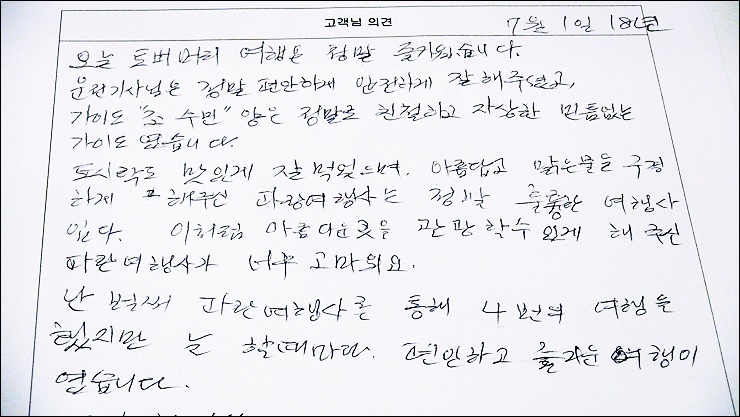 고객님 의견
7월 1일 18년
오늘 토버머리 여행은 정말 즐거웠습니다.
운전기사님은 정말 편안하게 안전하게 잘해주셨고,
가이드 "조 수민" 양은 정말로 친절하고 자상한 빈틈없는
가이드 였습니다.
도시락도 맛있게 잘먹었으며. 아름답고 맑은물을 구경
하게 해주신 파란여행사는 정말 훌륭한 여행사
입다. 이처럼 아름다운곳을 관광할수 있게 해 주신
파란여행사가 너무 고마워요.
난 벌써 파란여행사를 통해 4번의 여행을
했지만 늘 할때마다. 편안하고 즐거운 여행이
였습니다.